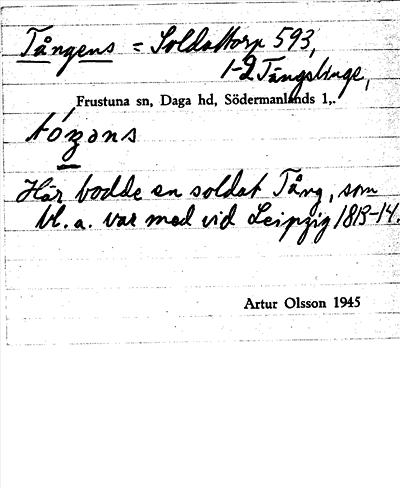 Tångens = Soldattorp 593,
1-2 Tängslinge,
Frustuna sn, Daga hd, Södermanlands l,.
Här bodde en soldat Tång, som
bl. a. var med vid Leipzig 1813-14.
Artur Olsson 1945